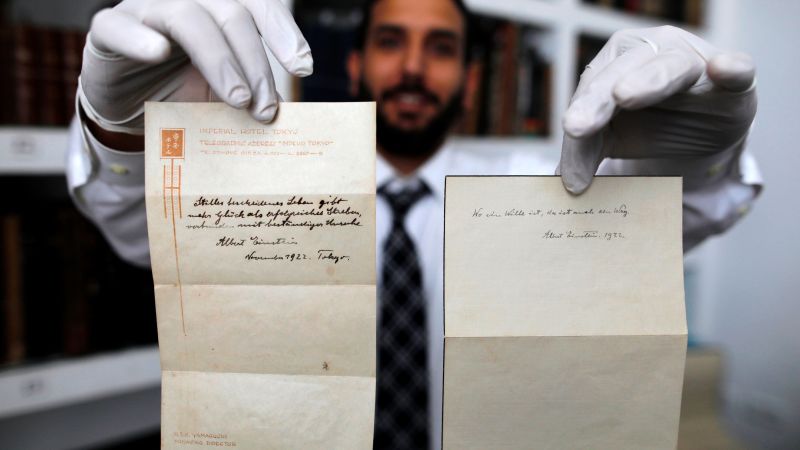 IMPERIAL HOTEL TOKYO
TELEGRAPHIC ADDRESS "IMPEHO TOKYO"
Stilles bescheidenes Leben gibt
mehr Glück als erfolgreiches Streben,
verbunden mit beständiger Unruhe.
Albert Einstein
November 1922. Tokyo.
YAMAGUCHI
MANAGING DIRECTOR
Wo ein Wille ist, da ist auch ein Weg.
Albert Einstein. 1922.